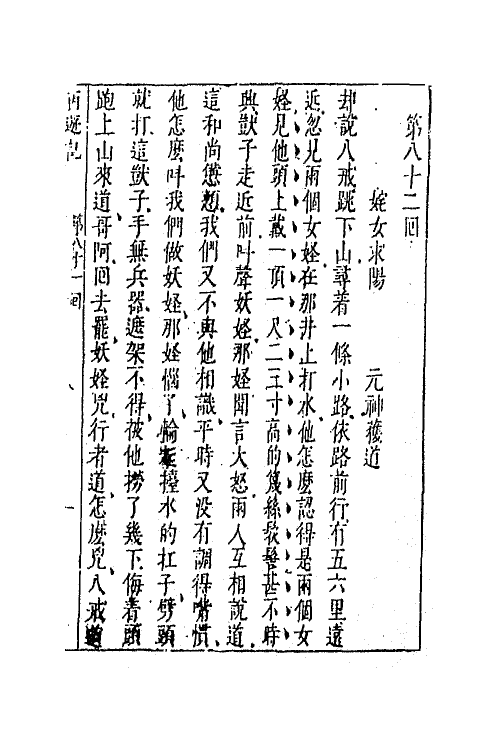 第八十二回
姹女求陽　元神護道
却說八戒跳下山尋着一條小路依路前行有五六里遠
近忽見兩個女怪在那井上打水他怎麽認得是兩個女
怪見他頭上戴一頂一尺二三寸高的篾絲䯼髻甚不時
興獃子走近前叫聲妖怪那怪聞言大怒兩人互相說道
這和尚憊𪬯我們又不與他相識平時又没有調得嘴慣
他怎麽叫我們做妖怪那怪惱了輪起擡水的杠子劈頭
就打這獃子手無兵器遮架不得被他撈了幾下侮着頭
跑上山來道哥阿回去罷妖怪兇行者道怎麽兇八戒道
西遊記　第八十一回　八